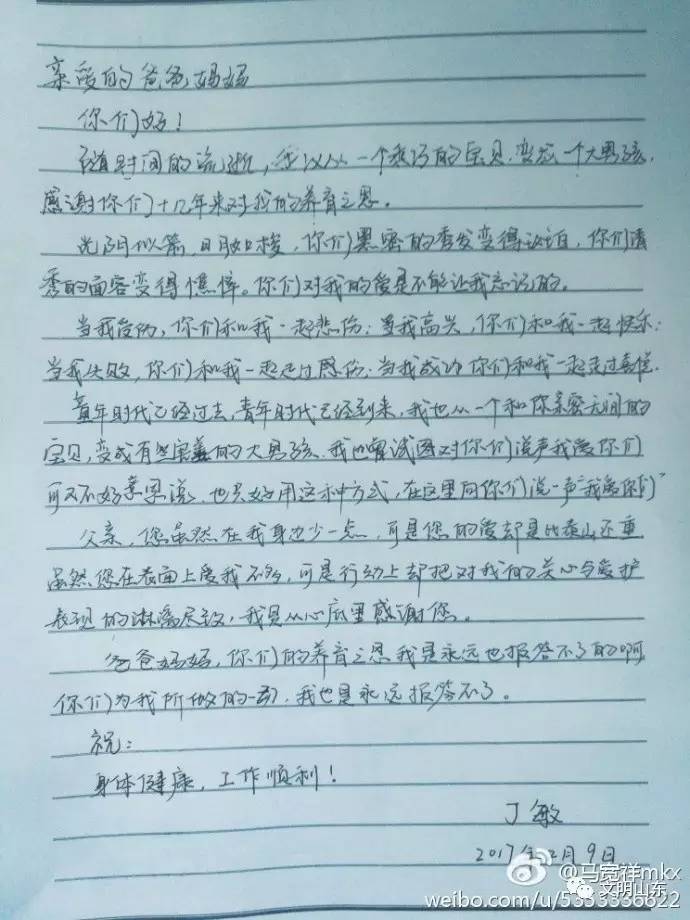 亲爱的爸爸妈妈
你们好！
随时间的流逝，我从一个乖巧的宝贝，变成一个大男孩，
感谢你们十几年来对我的养育之恩。
光阴似箭，日月如梭，你们黑密的秀发变得，你们清
秀的面容变得憔悴。你们对我的爱是不能让我忘记的。
当我受伤，你们和我一起悲伤；当我高兴，你们和我一起快乐；
当我失败，你们和我一起走过感伤；当我成功你们和我一起走过喜悦。
童年时代已经过去，青年时代已经到来，我也从一个和你亲密无间的
宝贝，变成有些害羞的大男孩，我也曾试图对你们说声我爱你们
可又不好亲口说，也只好用这种方式，在这里向你们说一声“我爱你们”
父亲，您虽然在我身边少一点，可是您的爱却是比泰山还重
虽然您在表面上爱我不够，可是行动上却把对我的关心与爱护
表现的淋漓尽致，我是从心底里感谢您。
爸爸妈妈，你们的养育之恩我是永远也报答不了的啊
你们为我所做的一切，我也是永远报答不了。
祝：
身体健康，工作顺利！
丁敏
2017年2月9日
@马宽祥mkx
文明山东
weibo.com/u/5333336622